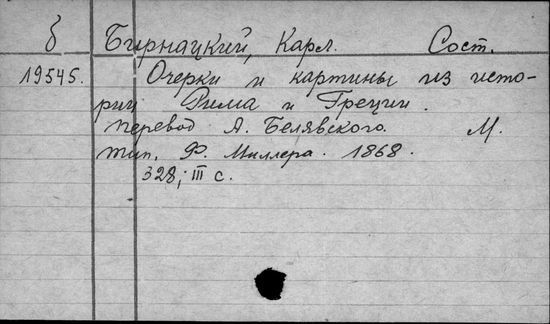 б Бирнацкий, Карл. Сост.
19545. Очерки и картины из исто-
рии Рима и Греции.
перевод А. Белявского. М.
тип. Ф. Миллера. 1868.
328, III с.